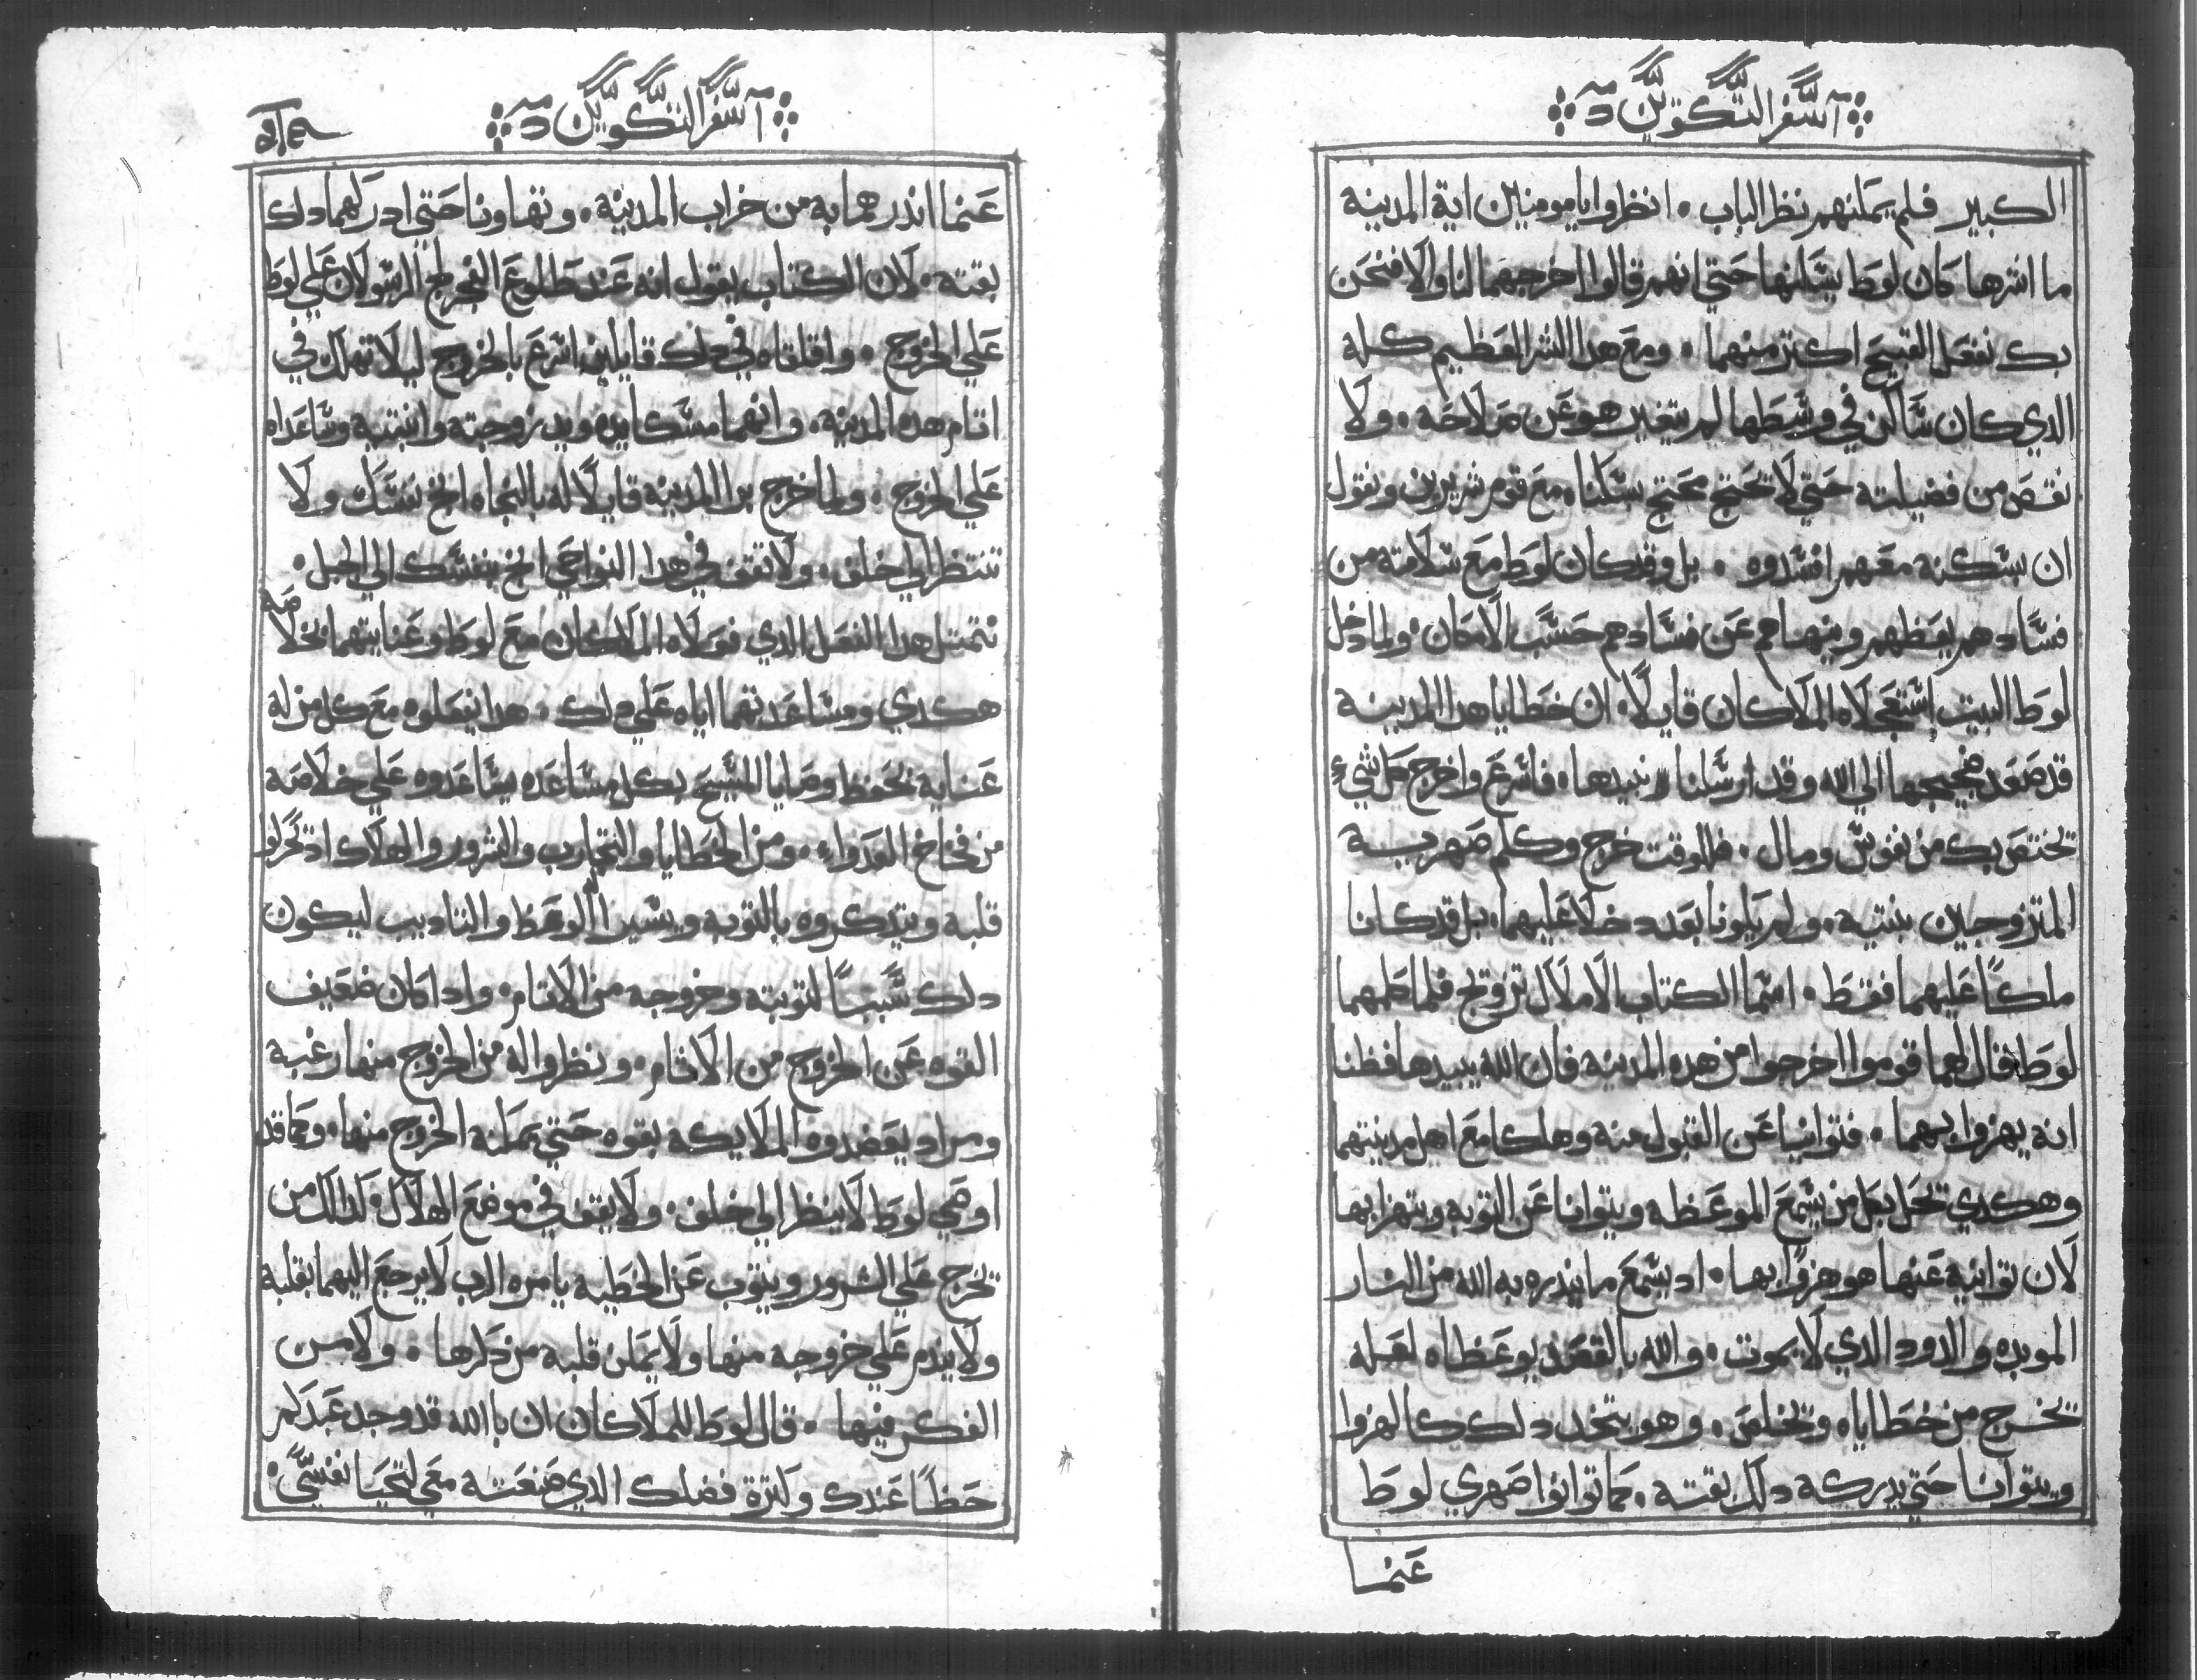 سفر التكوين
الكبير فلم يمكنهم نظر الباب. انظروا يا مومنين اية المدينة
ما اشرها كان لوط يسكنها حتي انهم قالوا اخرجهما لنا والا فنحن
بك نفعل القبيح اكتر منهما. ومع هدا الشر العظيم كله
الدي كان ساكن في وسطها لم يتغير هو عن صلاحه. ولا
نقص من فضيلته حتي لا تحتج محتج بسكناه مع قوم شريرين وتقول
ان بسكنه معهم افسدوه. بل وقد كان لوط مع سلامته من
فسادهم يعظهم وينهاهم عن فسادهم حسب الامكان. ولما دخل
لوط البيت استعجلاه الملاكان قايلاً. ان خطايا هدا المدينة
قد صعد ضجيجها الي الله وقد ارسلنا نبيدها. فاسرع واخرج كل شيء
تختص بك من نفوس ومال. فللوقت خرج وكلم صهريه
المتزوجين بنتيه. ولم يكونا بعد دخلا عليهما. بل قد كانا
ملكاً عليهما فقط. اسما الكتاب الاملاك تزويج فلما كلمهما
لوط فقال لهما قوموا اخرجوا من هده المدينه فان الله يبيدها فظنا
انه يهزوا بهما. فتوانيا عن القبول منه وهلكا مع اهل مدينتهما
وهكدي تحل بكل من يسمع الموعظه ويتوانا عن التوبه ويتهزا بها
لان توانيه عنها هو هزواً بها. اد يسمع ما يندره به الله من النار
الموبده والدود الدي لا يموت. والله بالقصد يوعظه لعله
تخرج من خطاياه وتخلص. وهو يتخد دلك كالهزوا
ويتوانا حتي يدركه دلك بغته. كما توانوا صهري لوط
عنما
سفر التكوين
عنما اندرهما به من خراب المدينه. وتهاونا حتي ادركهما دلك
بغته. لان الكتاب يقول انه عند طلوع الفجر الج الرسولان علي لوط
علي الخروج. واقلقاه في دلك قايلين اسرع بالخروج ليلا تهلك في
اتام هده المدينه. وانهما مسكا يده ويد زوجته وابنتيه وساعداه
علي الخروج. ولما خرج برا المدينه قايلاً له بالنجاه انج بنفسك ولا
تنتظر الي خلف. ولا تقف في هدا النواحي انج بنفسك الي الجبل.
نتمتل هدا الفعل الدي فعلاه الملاكان مع لوط وعنايتهما بخلاصه
هكدي ومساعدتهما اياه علي دلك. هدا نفعلوه مع كل من له
عنايه بحفظ وصايا المسيح بكل مساعده يساعدوه علي خلاصه
من فخاخ العدوا. ومن الخطايا والتجارب والشرور والهلاك اد تحركوا
قلبه ويتدكروه بالتوبه ويسيرا الوعظ والتاديب ليكون
دلك سبباً لتوبته وخروجه من الاتام. وادا كان ضعيف
القوه عن الخروج من الاتام. ونظروا له من الخروج منها رغبه
ومراد يعضدوه الملايكه بقوه حتي يمكنه الخروج منها. وكما قد
اوصي لوط لا ينظر الي خلف. ولا يقف في موضع الهلاك. كدلك من
تخرج علي الشرور ويتوب عن الخطيه يامره الرب لا يرجع اليهما بقلبه
ولا يندم علي خروجه منها ولا يمكن قلبه من دكرها. ولا من
الفكر فيها. قال لوط للملاكان ان بالله قد وجد عبدكم
حظاً عندك وكترة فضلك الدي صنعته معي لتحيا نفسي.